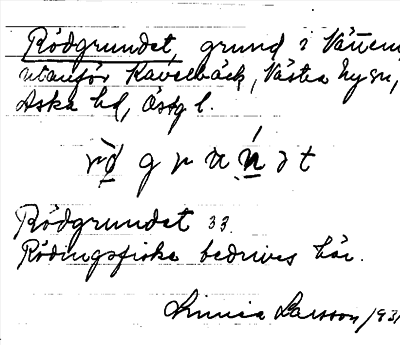 Rödgrundet, grund i Vättern
utanför Kavelbäck, Västra Ny sn,
Aska hd, Östg l.
Rödgrundet 33.
Rödingsfiske bedrives här.
Linnea Larsson 193